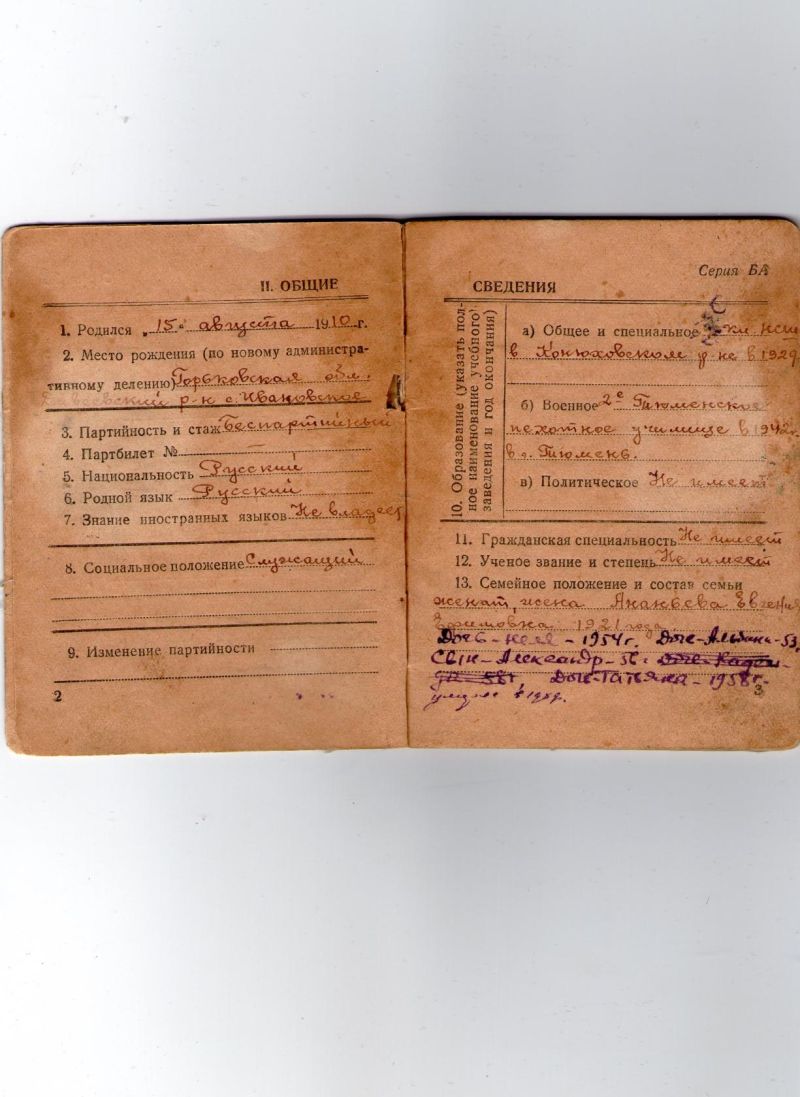 II. ОБЩИЕ
1. Родился „15“ августа 1910 г.
2. Место рождения (по новому администра-
тивному делению) Горьковская обл.
р-н с. Ивановское
3. Партийность и стаж Беспартийный
4. Партбилет №
5. Национальность Русский
6. Родной язык Русский
7. Знание иностранных языков Не владеет
8. Социальное положение Служащий
9. Изменение партийности
2
Серия БА
СВЕДЕНИЯ
10. Образование (указать пол-
ное наименование учебного
заведения и год окончания)
а) Общее и специальное
в Конюховском р-не в 1929
б) Военное 2е Тюменское
пехотное училище в 1942
в г. Тюмень.
в) Политическое Не имеет
11. Гражданская специальность Не имеет
12. Ученое звание и степень Не имеет
13. Семейное положение и состав семьи
женат, жена Евгения
1921 года
Дочь - - 1954 г. Дочь - 53,
Сын - Александр - Дочь
Дочь - Татьяна - 1958 г.
3